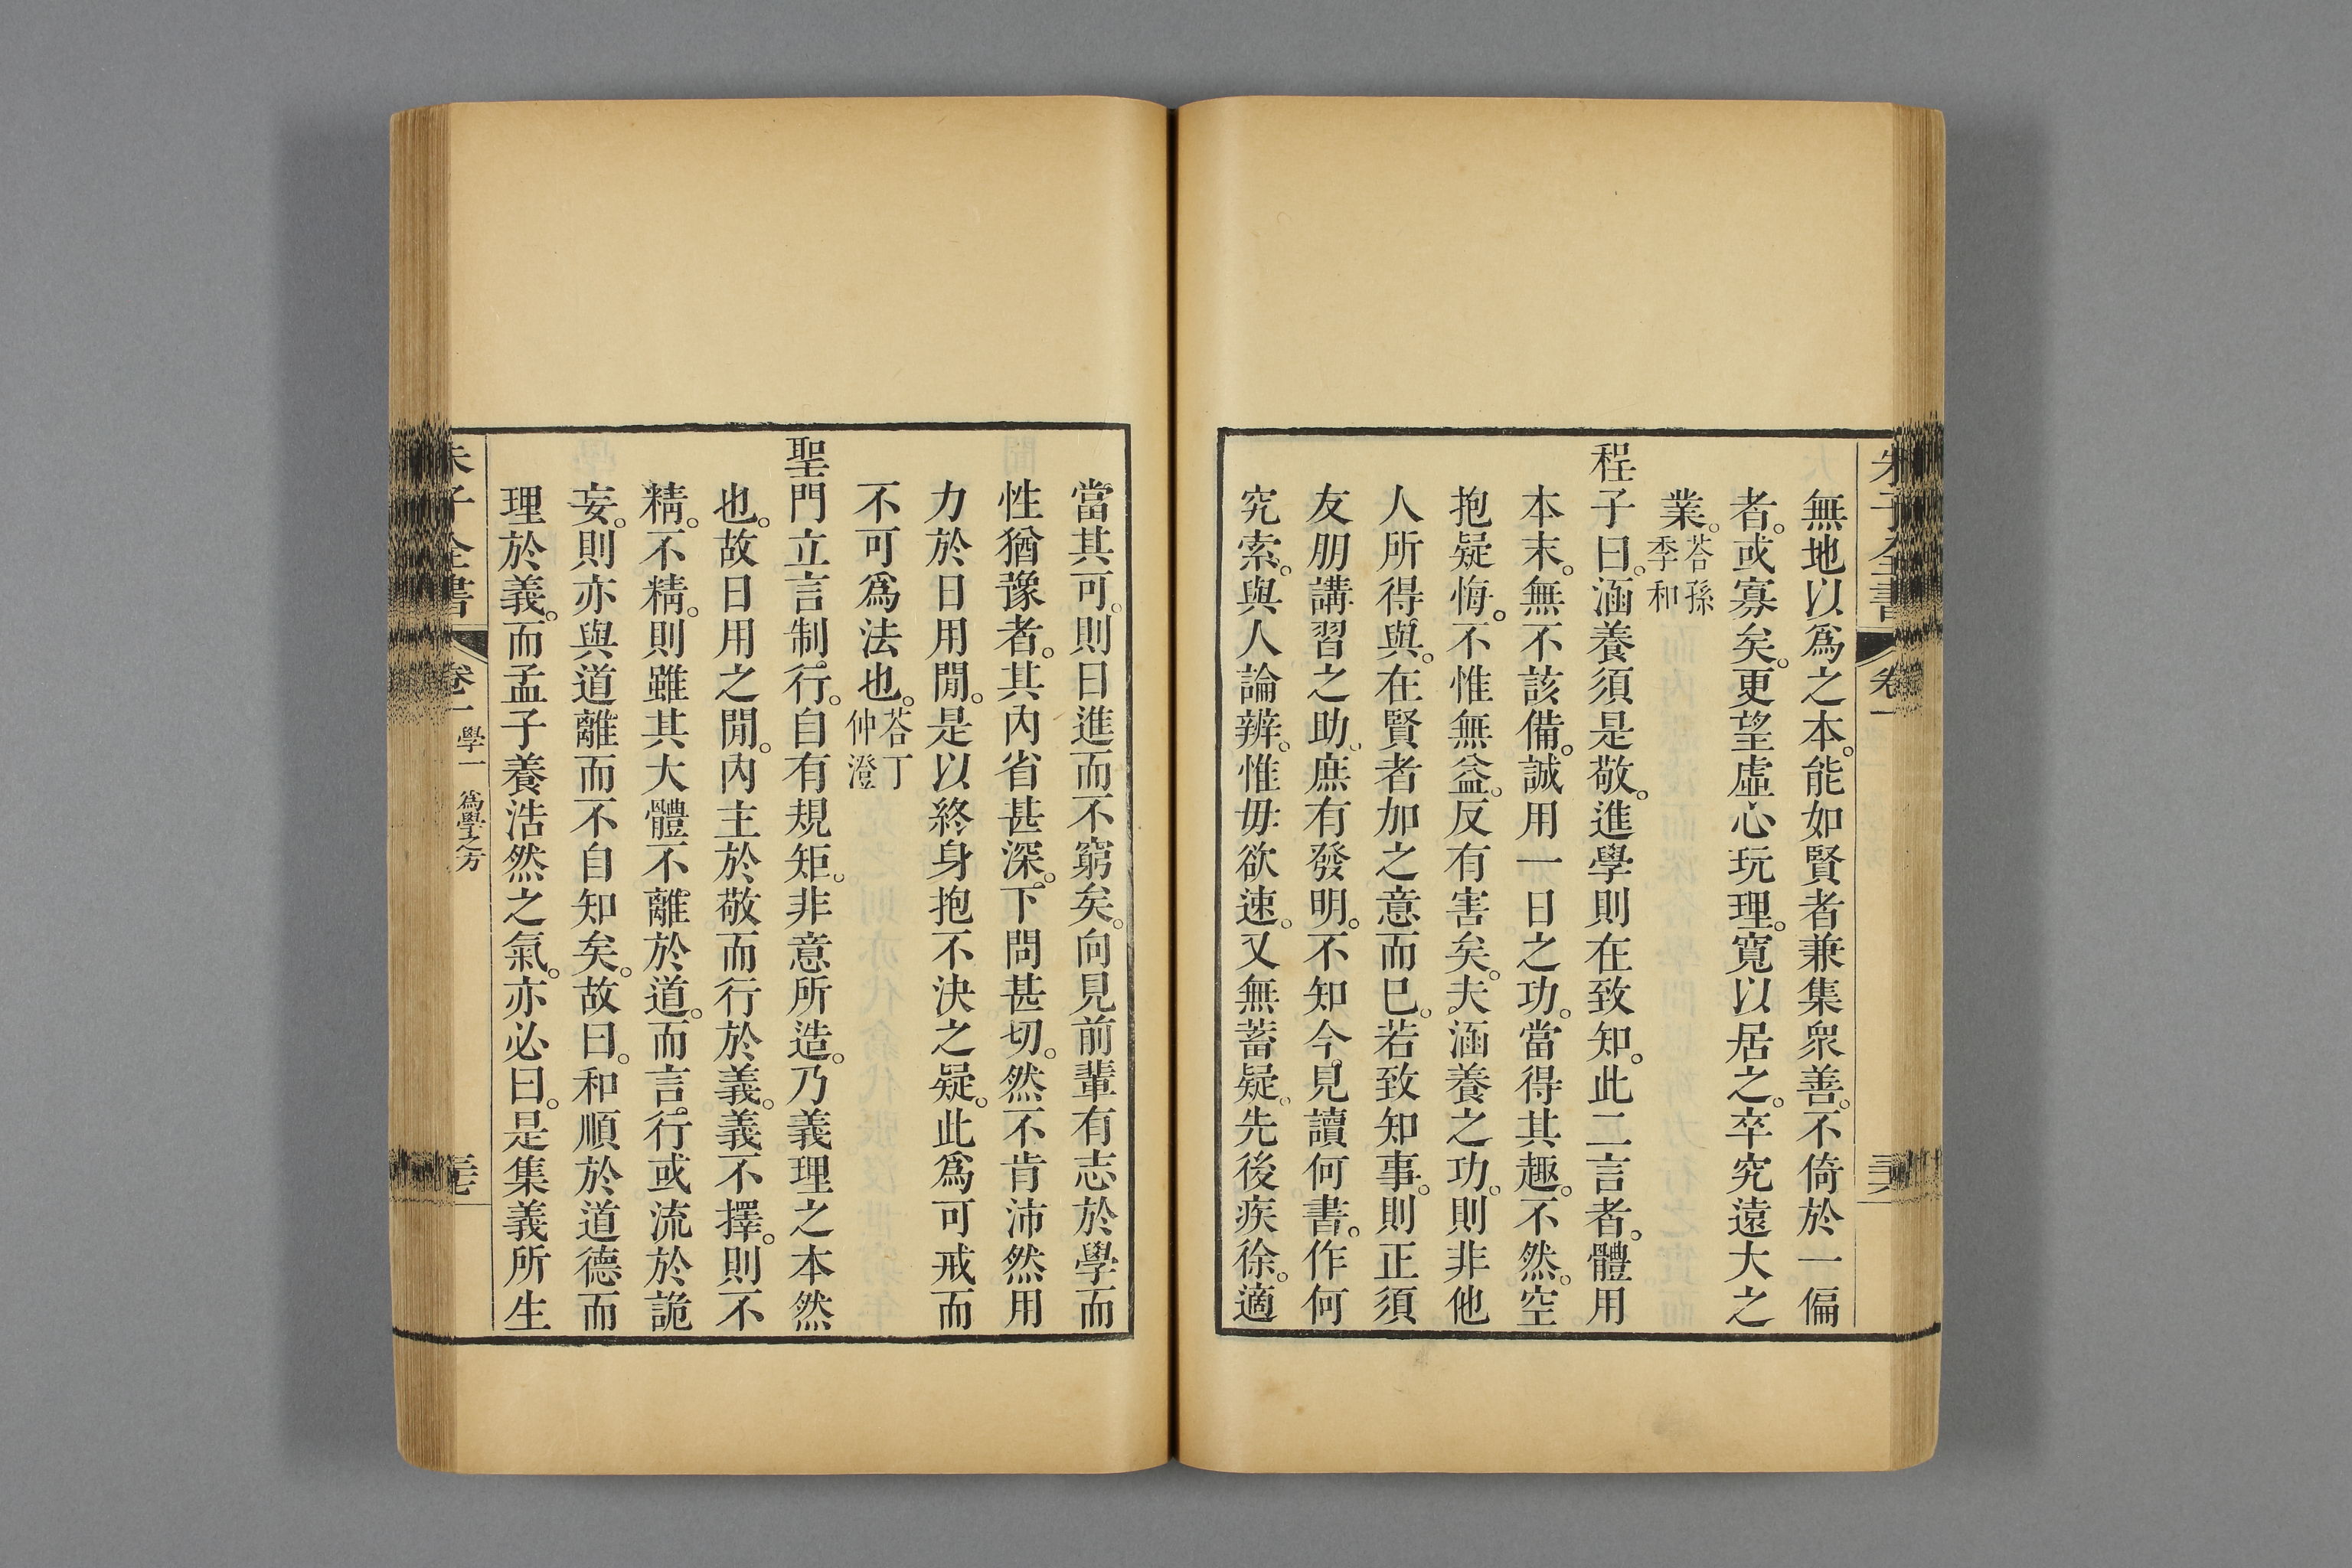 朱子全書 卷一 三六
無地以爲之本。能如賢者兼集衆善。不倚於一偏
者。或寡矣。更望虛心玩理。寬以居之。卒究遠大之
業。荅孫季和
程子曰。涵養須是敬。進學則在致知。此二言者。體用
本末。無不該備。誠用一日之功。當得其趣。不然。空
抱疑悔。不惟無益。反有害矣。夫涵養之功。則非他
人所得與。在賢者加之意而已。若致知事。則正須
友朋講習之助。庶有發明。不知今見讀何書。作何
究索。與人論辨。惟毋欲速。又無蓄疑。先後疾徐。適
當其可。則日進而不窮矣。向見前輩有志於學而
性猶豫者。其內省甚深。下問甚切。然不肯沛然用
力於日用閒。是以終身抱不決之疑。此爲可戒而
不可爲法也。荅丁仲澄
聖門立言制行。自有規矩。非意所造。乃義理之本然
也。故日用之閒。內主於敬而行於義。義不擇。則不
精。不精。則雖其大體不離於道。而言行或流於詭
妄。則亦與道離而不自知矣。故曰。和順於道德而
理於義。而孟子養浩然之氣。亦必曰。是集義所生
朱子全書 卷一 學一 爲學之方 三七